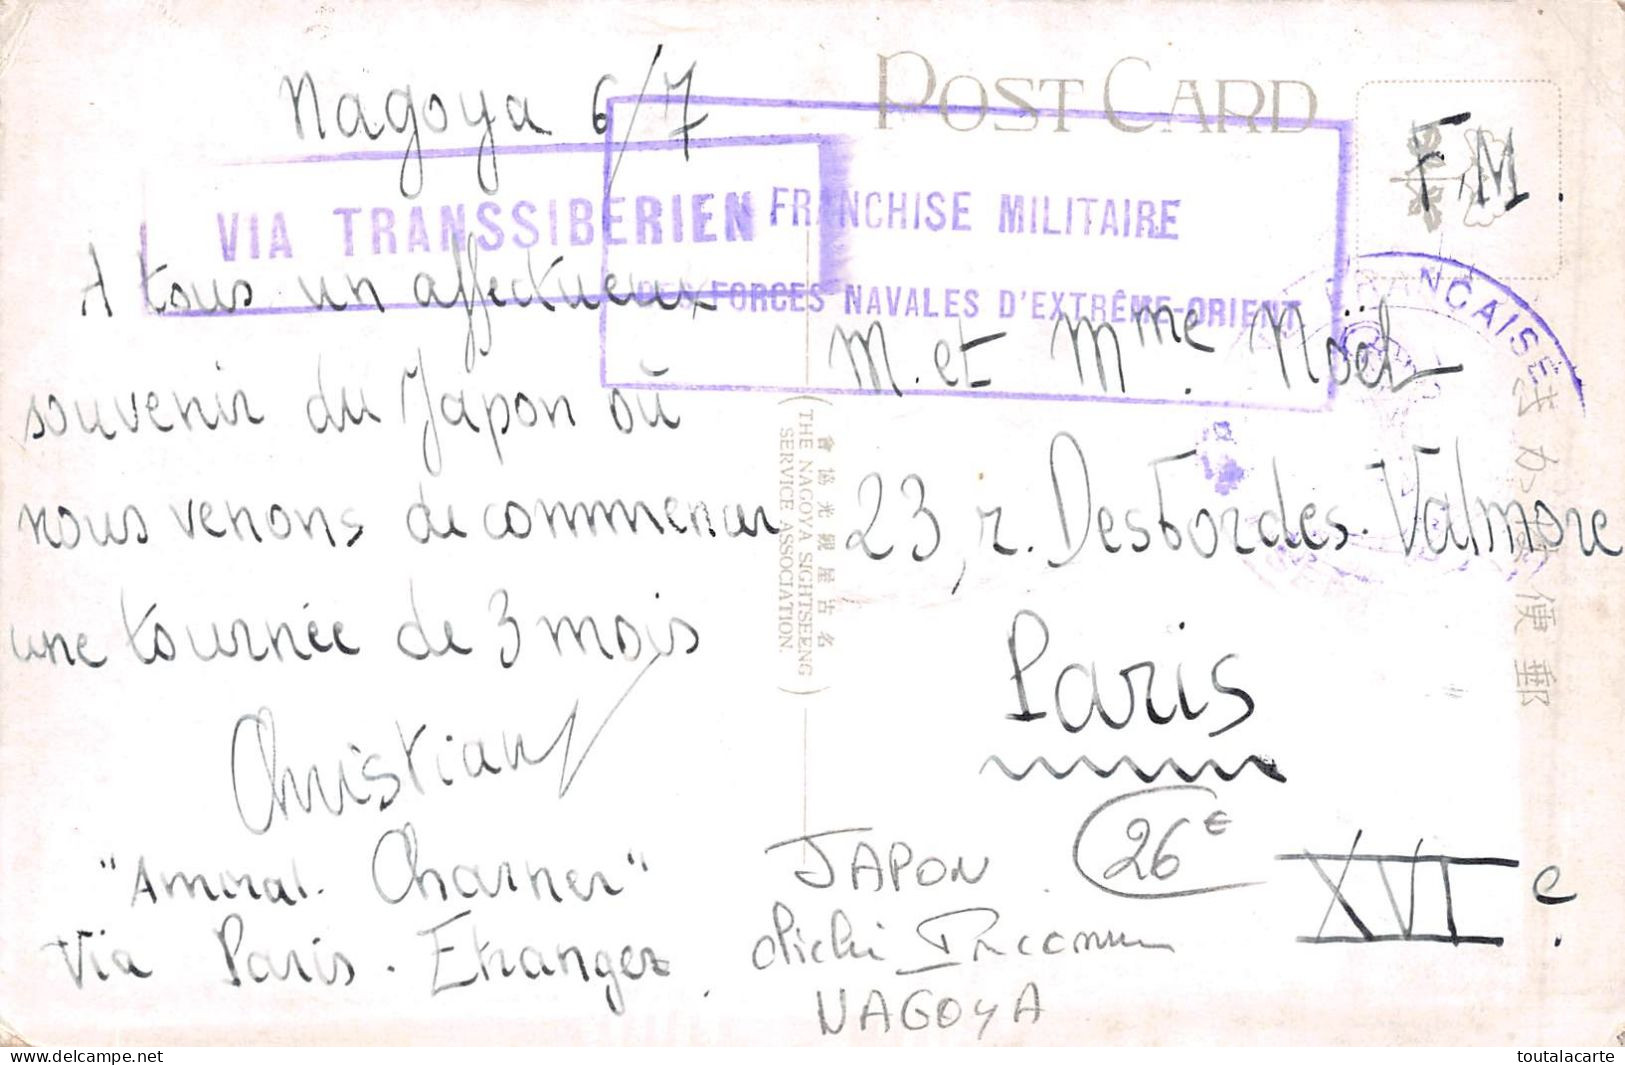 POST CARD
Nagoya 6/7
F.M.
VIA TRANSSIBERIEN
FRANCHISE MILITAIRE
DES FORCES NAVALES D'EXTRÊME-ORIENT
FRANÇAISE
A tous un affectueux
souvenir du Japon où
nous venons de commencer
une tournée de 3 mois
Christian
"Amiral. Charner"
Via Paris. Etranger.
M. et Mme. Noël
23, r. Desbordes. Valmore
Paris
XVIe.
會協光觀屋古名
(THE NAGOYA SIGHTSEENG
SERVICE ASSOCIATION.)
JAPON
26€
cliché Inconnu
NAGOYA
toutalacarte